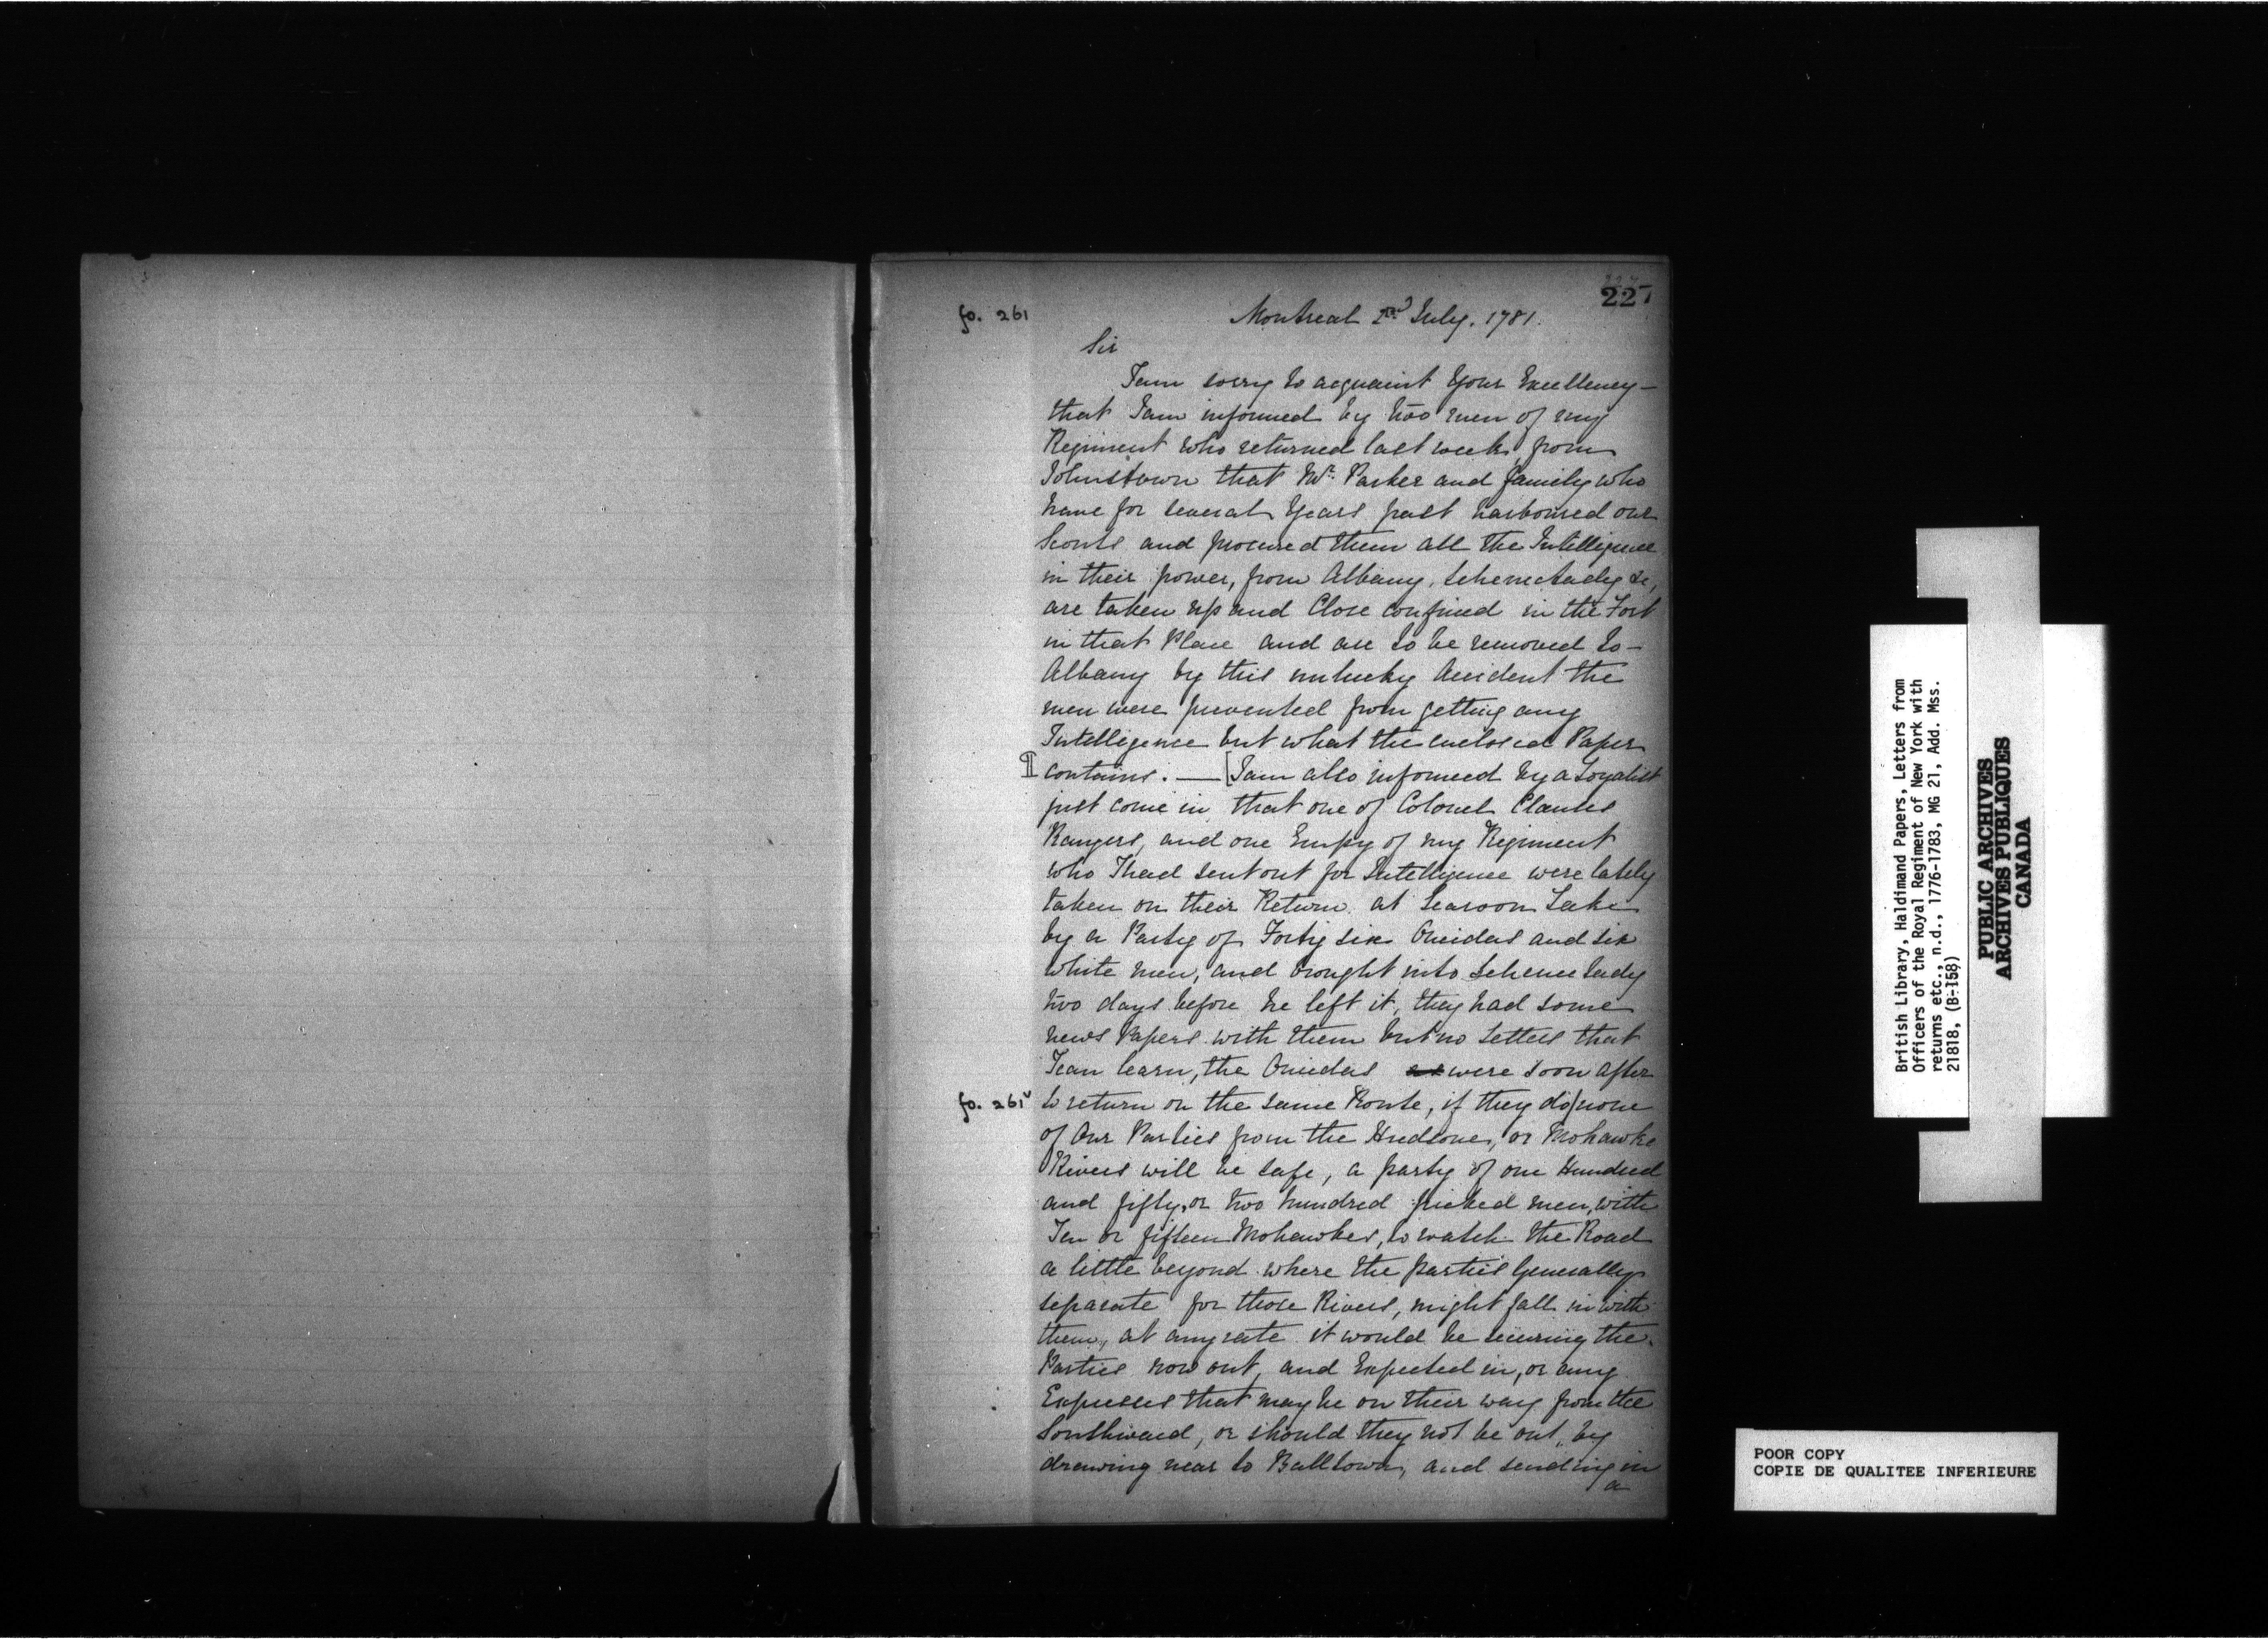 227
fo. 261
Montreal 2nd July. 1781.
Sir
I am sorry to acquaint Your Excellency —
that I am informed by two men of my
Regiment who returned last week, from
Johnstown that Mr. Parker and family who
have for several Years past harboured our
Scouts and procured them all the Intelligence
in their power, from Albany, Schenectady &c,
are taken up and Close confined in the Fort
in that Place and are to be removed to —
Albany by this unlucky Accident the
men were prevented from getting any
Intelligence but what the enclosed Paper
contains. — [I am also informed by a Loyalist
just come in that one of Colonel Clauses
Rangers, and one Empy of my Regiment
who I had sent out for Intelligence were lately
taken on their Return at Scaroon Lake
by a Party of Forty six Oneidas and six
white men, and brought into Schenectady
two days before he left it, they had some
news Papers with them but no Letters that
I can learn, the Oneidas were soon after
fo. 261v
to return on the same Route, if they do/none
of Our Parties from the Hudsons, or Mohawke
Rivers will be safe, a party of one Hundred
and fifty, or two hundred picked men, with
Ten or fifteen Mohawkes, to watch the Road
a little beyond where the parties Generally
separate for those Rivers, might fall in with
them, at any rate it would be securing the
Parties now out, and Expected in, or any
Expresses that may be on their way from the
Southward, or should they not be out, by
drawing near to Balltown, and sending in
a
British Library, Haldimand Papers, Letters from
Officers of the Royal Regiment of New York with
returns etc., n.d., 1776-1783, MG 21, Add. Mss.
21818, (B-158)
PUBLIC ARCHIVES
ARCHIVES PUBLIQUES
CANADA
POOR COPY
COPIE DE QUALITEE INFERIEURE